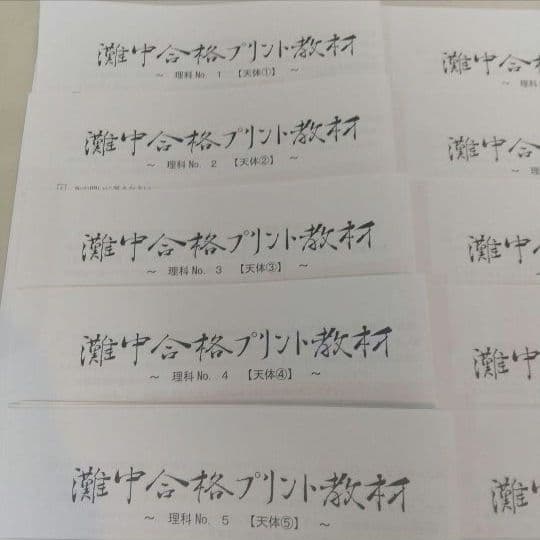 灘中合格プリント教材
～ 理科 No. 1 【天体①】 ～
灘中合格プリント教材
～ 理科 No. 2 【天体②】 ～
灘中合格プリント教材
～ 理科 No. 3 【天体③】 ～
灘中合格プリント教材
～ 理科 No. 4 【天体④】 ～
灘中合格プリント教材
～ 理科 No. 5 【天体⑤】 ～
灘中合格
～ 理科
灘中合
～ 理
灘中
灘中
灘中